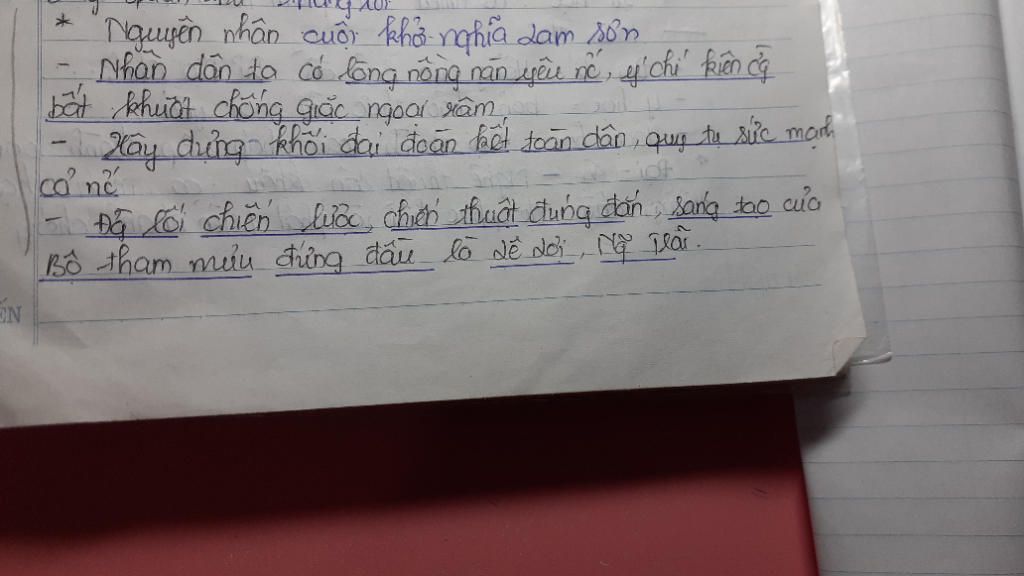 * Nguyên nhân cuộc khởi nghĩa Lam Sơn
- Nhân dân ta có lòng nồng nàn yêu nc, ý chí kiên cg
bất khuất chống giặc ngoại xâm
- Xây dựng khối đại đoàn kết toàn dân, quy tụ sức mạnh
cả nc
- Đg lối chiến lược, chiến thuật đúng đắn, sáng tạo của
Bộ tham mưu đứng đầu là Lê Lợi, Ng Trãi.
ẾN